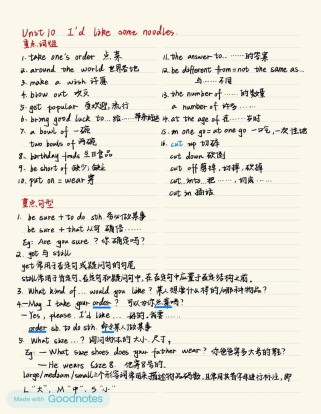 Unit 10 I'd like some noodles.
重点词组
1. take one's order 点菜
2. around the world 世界各地
3. make a wish 许愿
4. blow out 吹灭
5. get popular 受欢迎,流行
6. bring good luck to... 给……带来好运
7. a bowl of 一碗
two bowls of 两碗
8. birthday foods 生日食品
9. be short of 缺少,缺乏
10. put on = wear 穿
11. the answer to... ……的答案
12. be different from = not the same as...
与……不同
13. the number of ……的数量
a number of 许多……
14. at the age of 在……岁时
15. in one go = at one go 一口气,一次性地
16. cut up 切碎
cut down 砍倒
cut off 切掉,砍掉
cut...into... 把……切成……
cut in 插话
重点句型
1. be sure + to do sth. 务必做某事
be sure + that 从句 确信……
Eg: Are you sure? 你确定吗?
2. yet 与 still
yet 常用于否定句或疑问句的句尾
still 常用于肯定句、否定句和疑问句中,在否定句中位置于否定结构之前。
3. What kind of... would you like? 某人想要什么样的/哪种物品?
4. —May I take your order? 可以点菜吗?
—Yes, please. I'd like... 好的。我要……
order sb. to do sth. 命令某人做某事
5. What size...? 询问物体的大小、尺寸。
Eg: — What size shoes does your father wear? 你爸爸穿多大号的鞋?
— He wears size 8. 他穿8号的。
large/medium/small 三个形容词常用来描述物品码数,且常用其首字母进行标注,即
L "大", M "中", S "小"
Made with Goodnotes